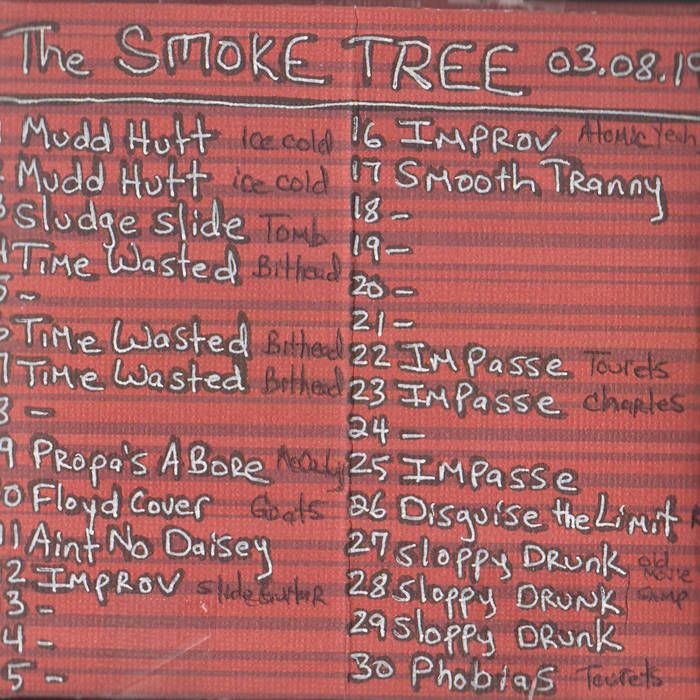 The SMOKE TREE 03.08.19
Mudd Hutt ice cold
Mudd Hutt ice cold
Sludge Slide Tomb
4 Time Wasted Bithead
5 -
6 Time Wasted Bithead
7 Time Wasted Bithead
8 -
9 Propa's A Bore
0 Floyd Cover Goats
11 Aint No Daisey
12 IMPROV slide guitar
3 -
4 -
5 -
16 IMPROV Atomic Yeah
17 Smooth Tranny
18 -
19 -
20 -
21 -
22 IMPasse Tourets
23 IMPasse Charles
24 -
25 IMPasse
26 Disguise the Limit
27 Sloppy DRUNK old
28 Sloppy DRUNK
29 Sloppy DRUNK
30 Phobias Tourets